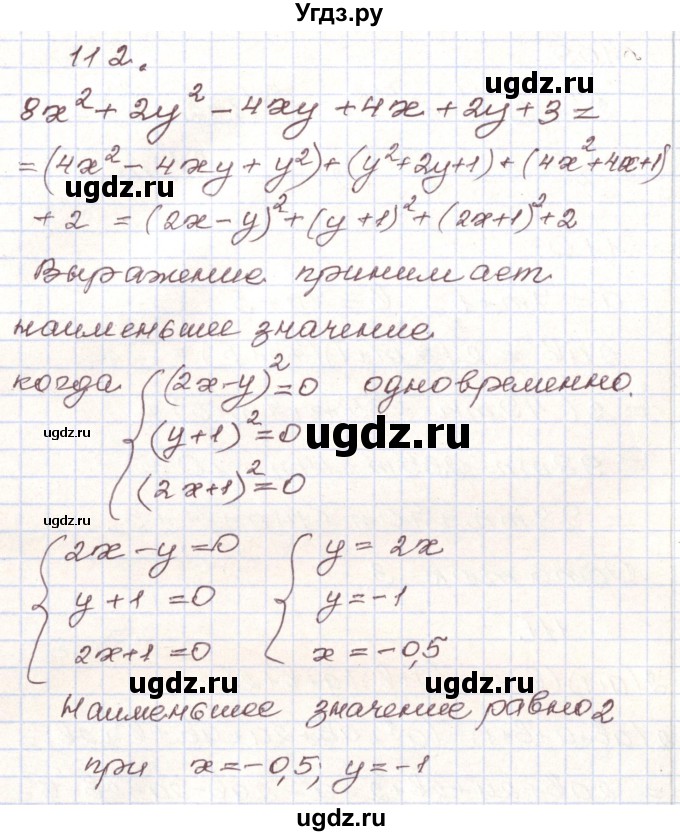 Угдз.ру
112.
ugdz.ru
8x² + 2y² - 4xy + 4x + 2y + 3 =
= (4x² - 4xy + y²) + (y² + 2y + 1) + (4x² + 4x + 1)
ugdz.ru
ugdz.ru
+ 2 = (2x - y)² + (y + 1)² + (2x + 1)² + 2
Выражение принимает
наименьшее значение
когда { (2x - y)² = 0 одновременно.
ugdz.ru
(y + 1)² = 0
ugdz.ru
(2x + 1)² = 0
ugdz.ru
{ 2x - y = 0 { y = 2x
y + 1 = 0 y = -1
2x + 1 = 0 x = -0,5
ugdz.ru
ugdz.ru
Наименьшее значение равно 2
при x = -0,5; y = -1
ugdz.ru